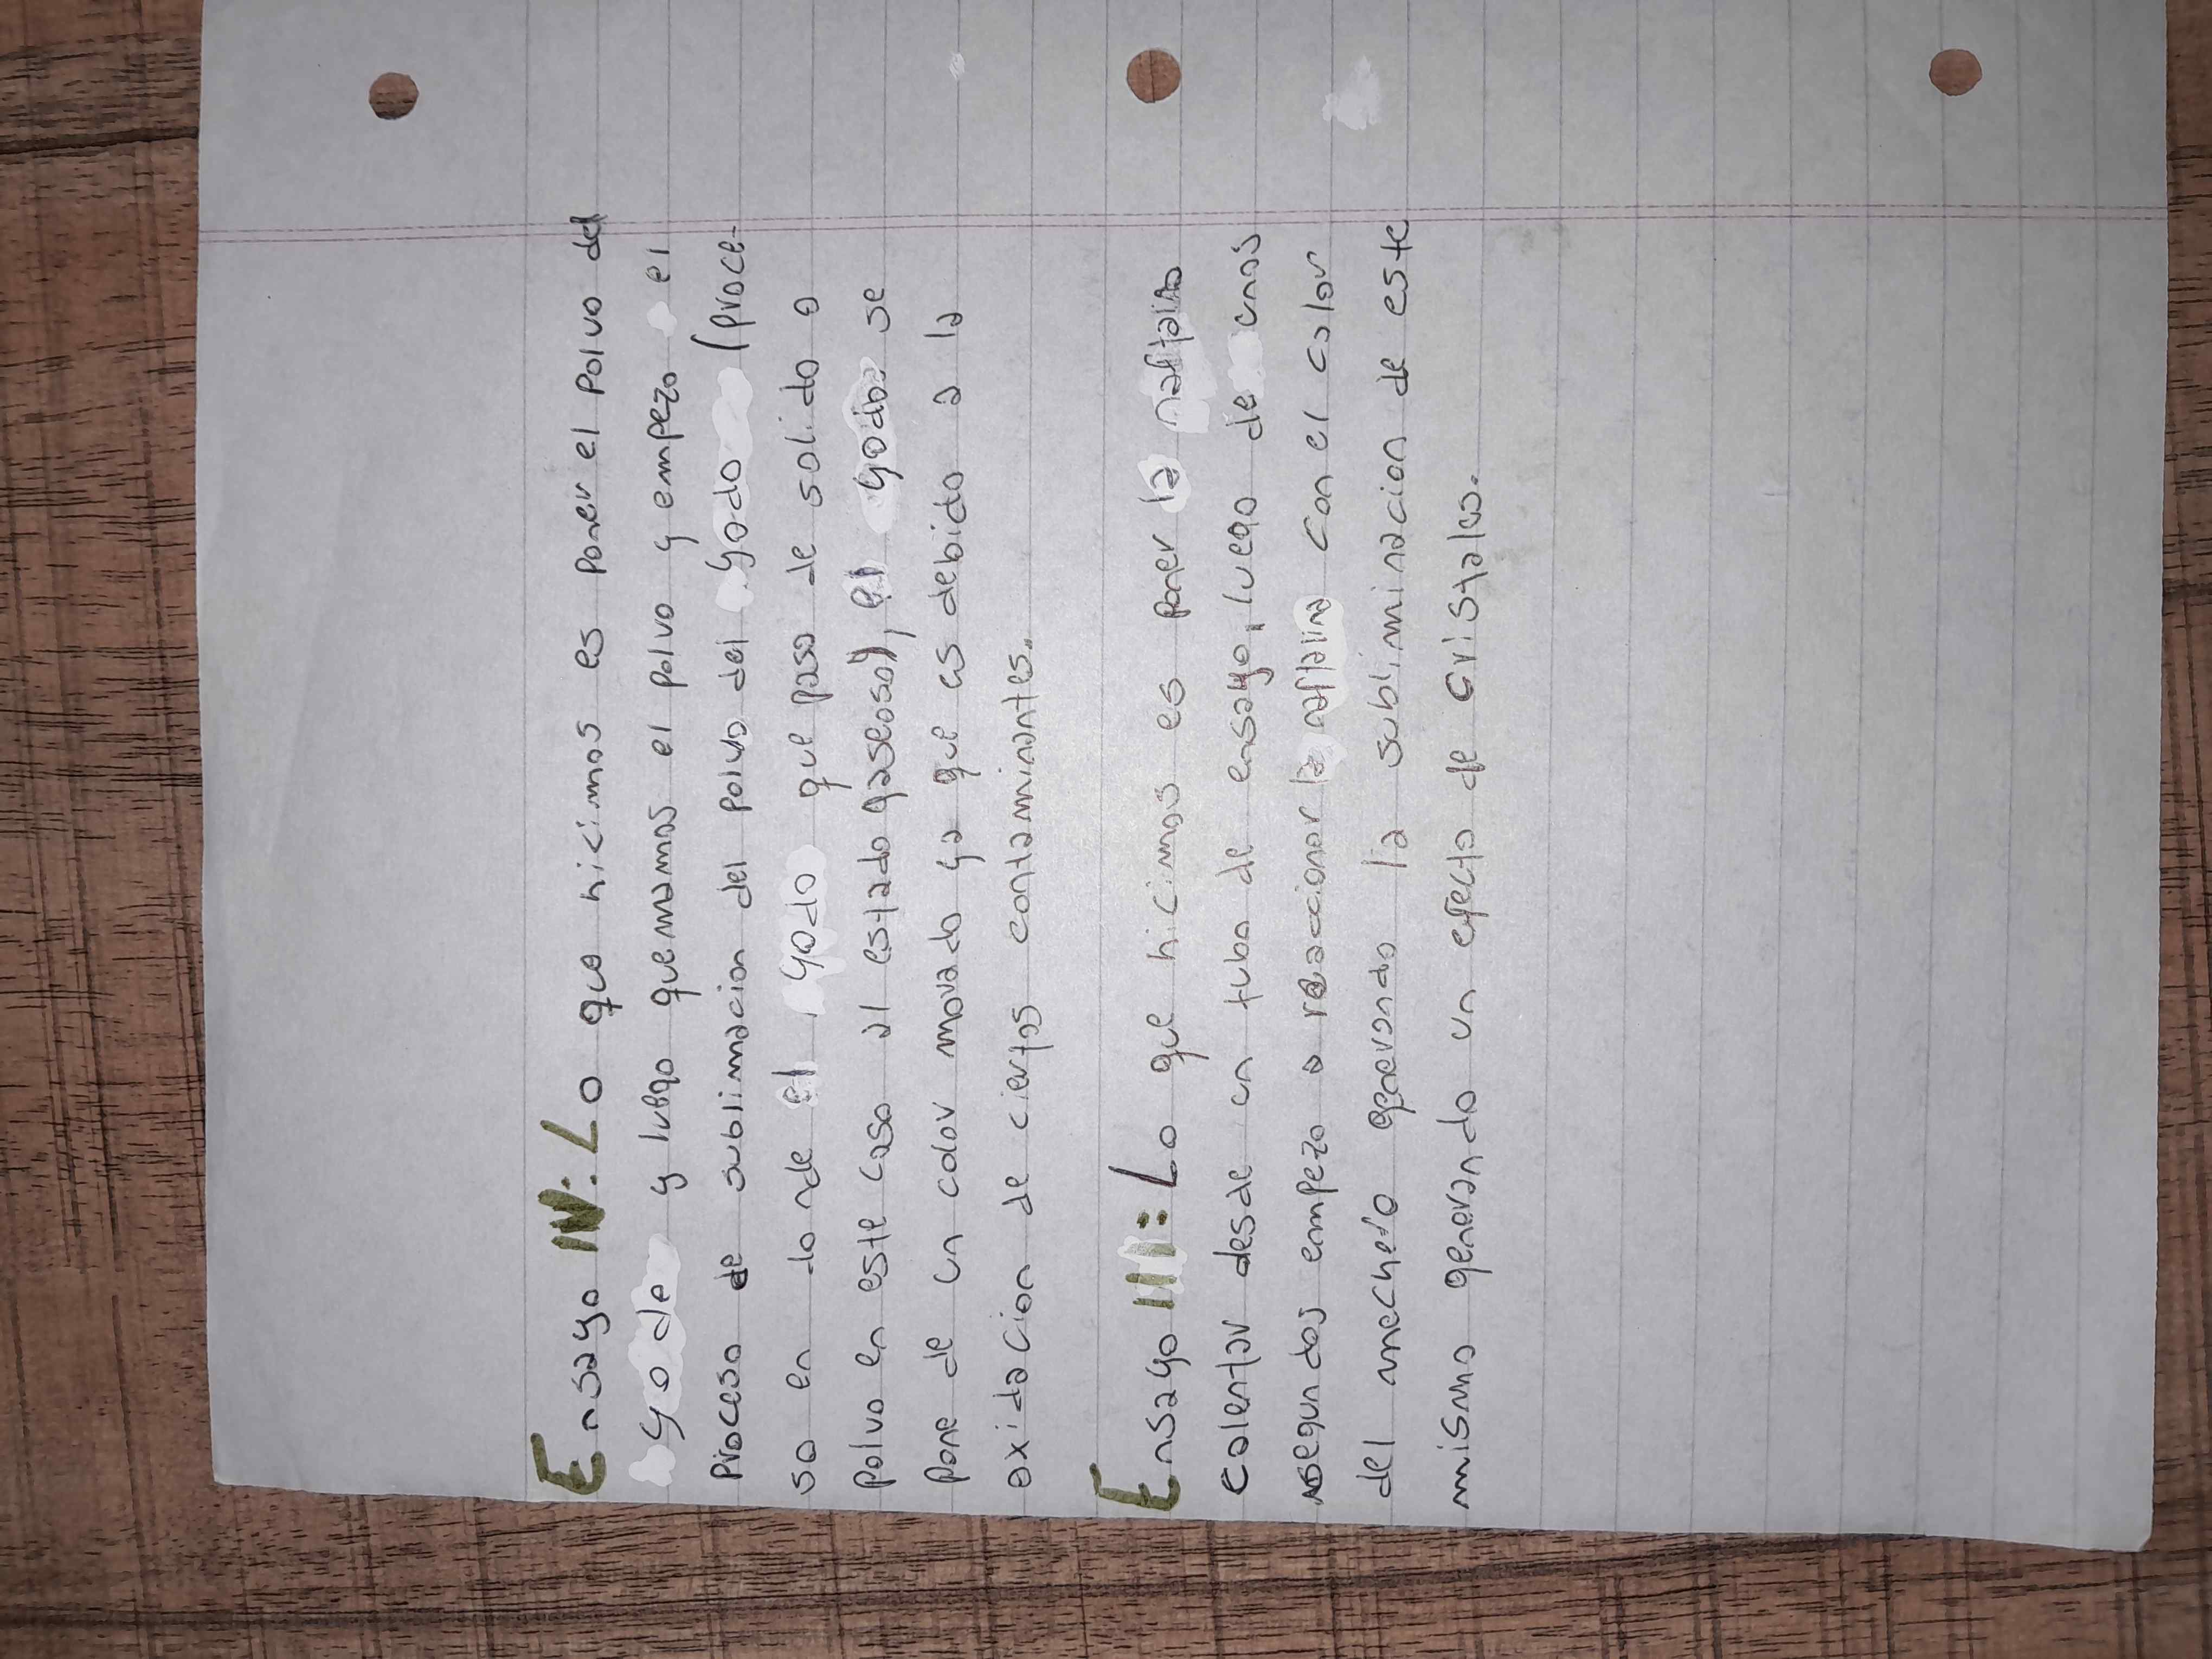 Ensayo IIV: Lo que hicimos es poner el polvo del
yode y luego quemamos el polvo y empezo el
proceso de sublimacion del polvo del yodo (proce-
so en donde el yodo que paso de solido a
polvo en este caso al estado gaseoso), el yodo se
pone de un color movado ya que es debido a la
oxidacion de ciertos contaminantes.
Ensayo III: Lo que hicimos es poner la naftalina
calentar desde un tubo de ensayo, luego de unos
segundos empezo a reaccionar la naftalina con el calor
del mechero generando la subliminacion de este
mismo generando un efecto de cristales.